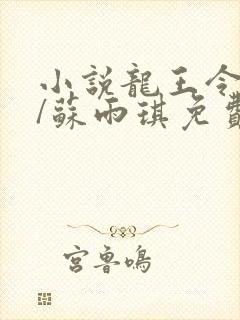 小說龍王令
/蘇雨琪免費
宮魯鳴